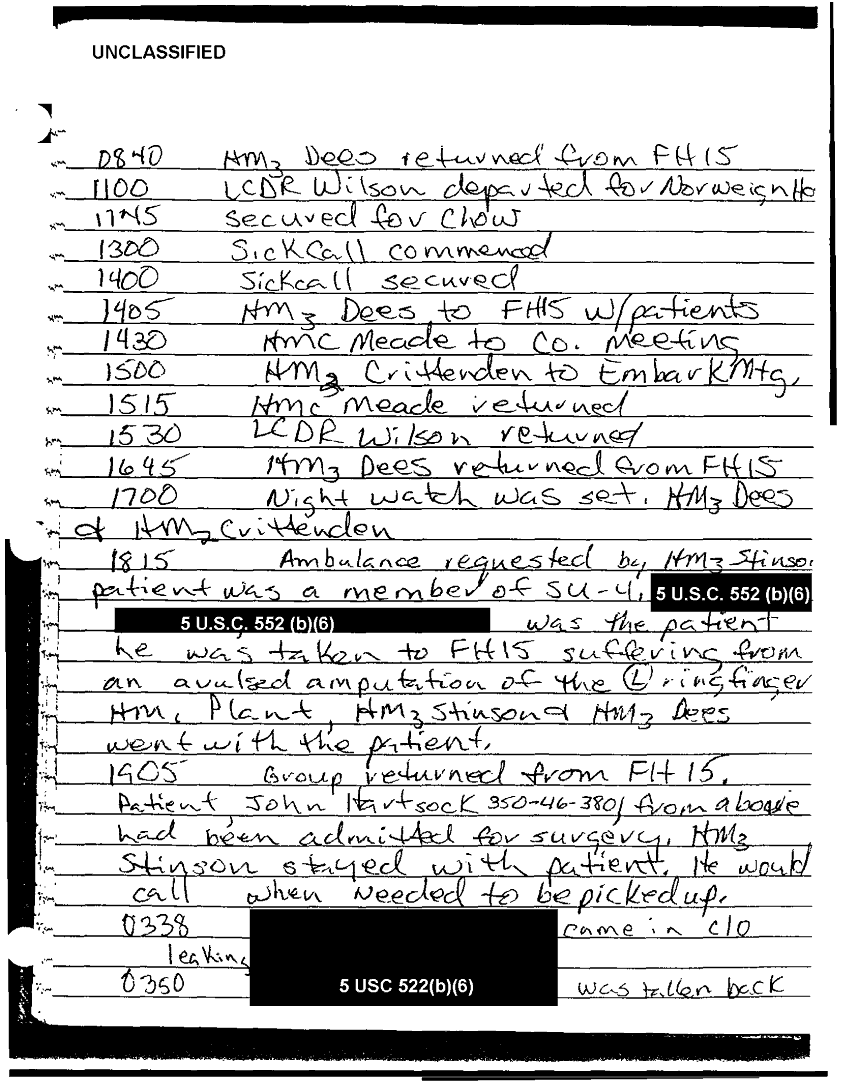 UNCLASSIFIED
0840 HM3 Dees returned from FH15
1100 LCDR Wilson departed for Norweign Ho
1145 secured for Chow
1300 SickCall commenced
1400 Sickcall secured
1405 HM3 Dees to FH15 w/patients
1430 HMC Meade to Co. meeting
1500 HM3 Crittenden to Embark Mtg.
1515 HMC Meade returned
1530 LCDR Wilson returned
1645 HM3 Dees returned from FH15
1700 Night watch was set. HM3 Dees
& HM3 Crittenden
1815 Ambulance requested by HM3 Stinso
patient was a member of SU-4. 5 U.S.C. 552 (b)(6)
5 U.S.C. 552 (b)(6) was the patient
he was taken to FH15 suffering from
an avulsed amputation of the (L) ring finger
HM1 Plant, HM3 Stinson & HM3 Dees
went with the patient.
1905 Group returned from FH 15.
Patient, John Hartsock [SSN omitted] from above
had been admitted for surgery. HM3
Stinson stayed with patient. He would
call when needed to be picked up.
0338 came in c/o
leaking
0350 5 USC 522(b)(6) was taken back